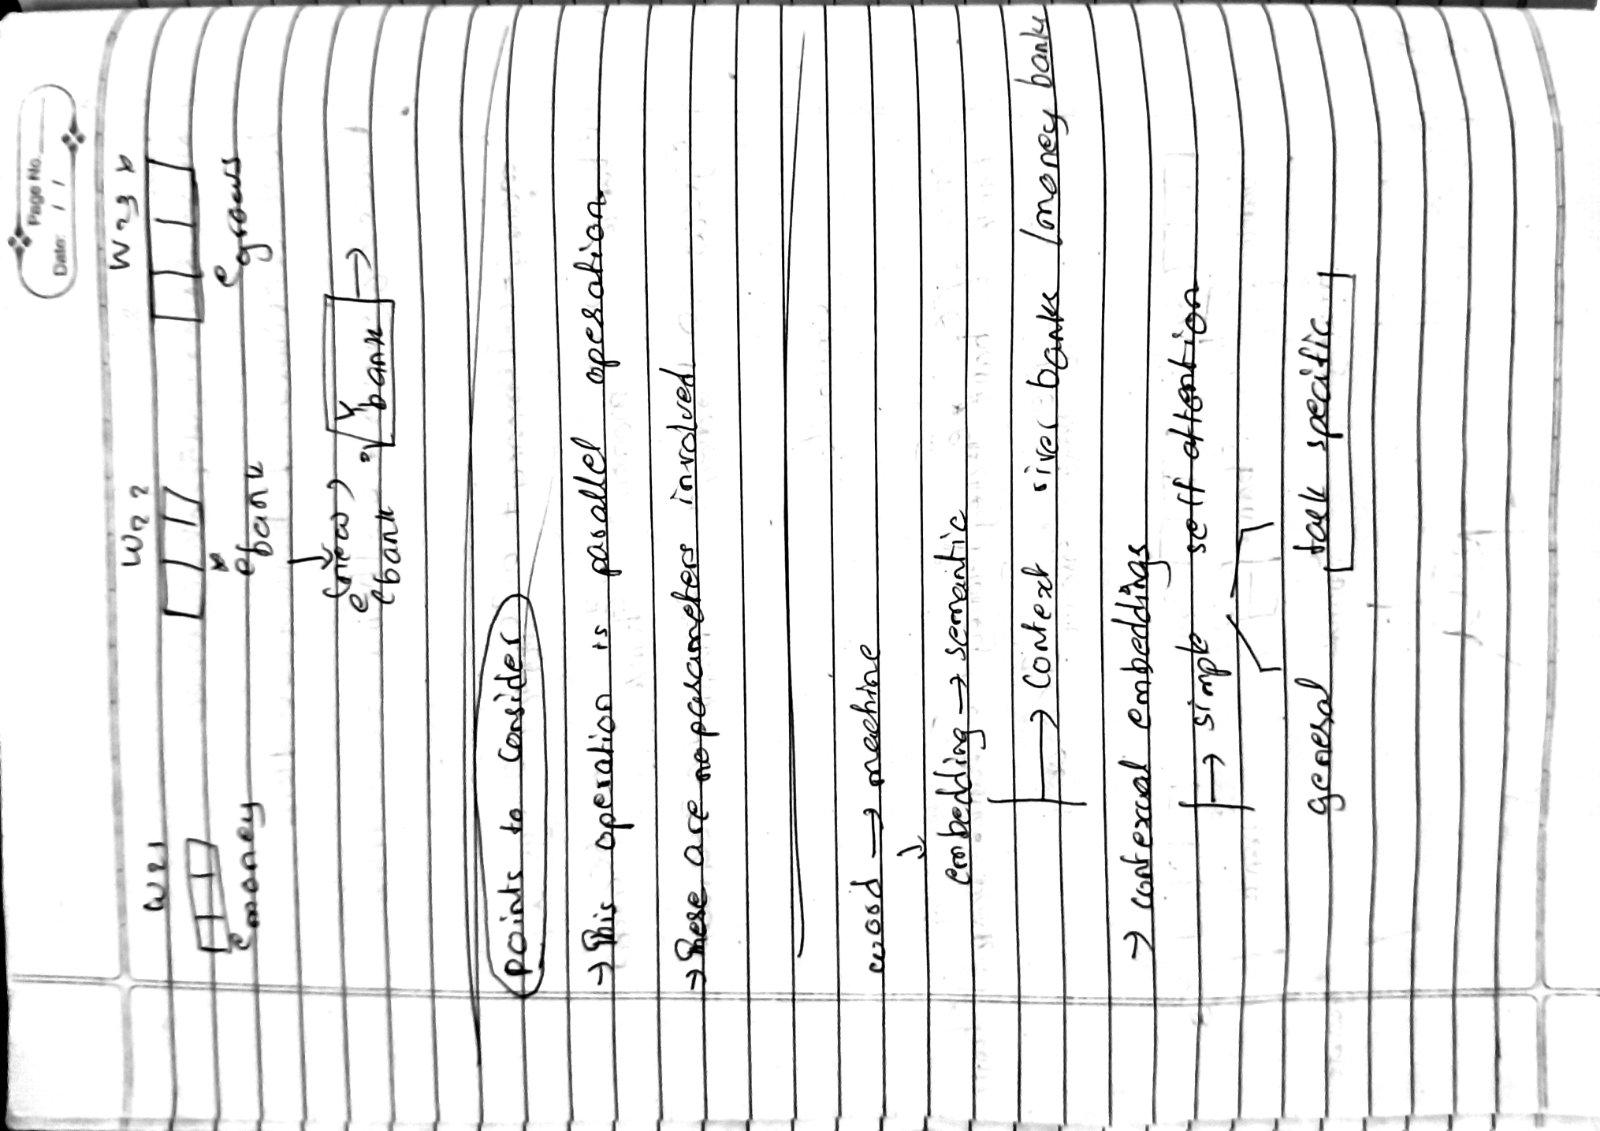 Page No.
Date: / /
W21 W22 W23 x
e money e bank e grows
e(new) bank Y bank →
points to consider
→ This operation is parallel operation
→ There are no parameters involved
word → machine
↓
embedding → semantic
→ context river bank / money bank
→ contexual embeddings
→ simple self attention
general task specific